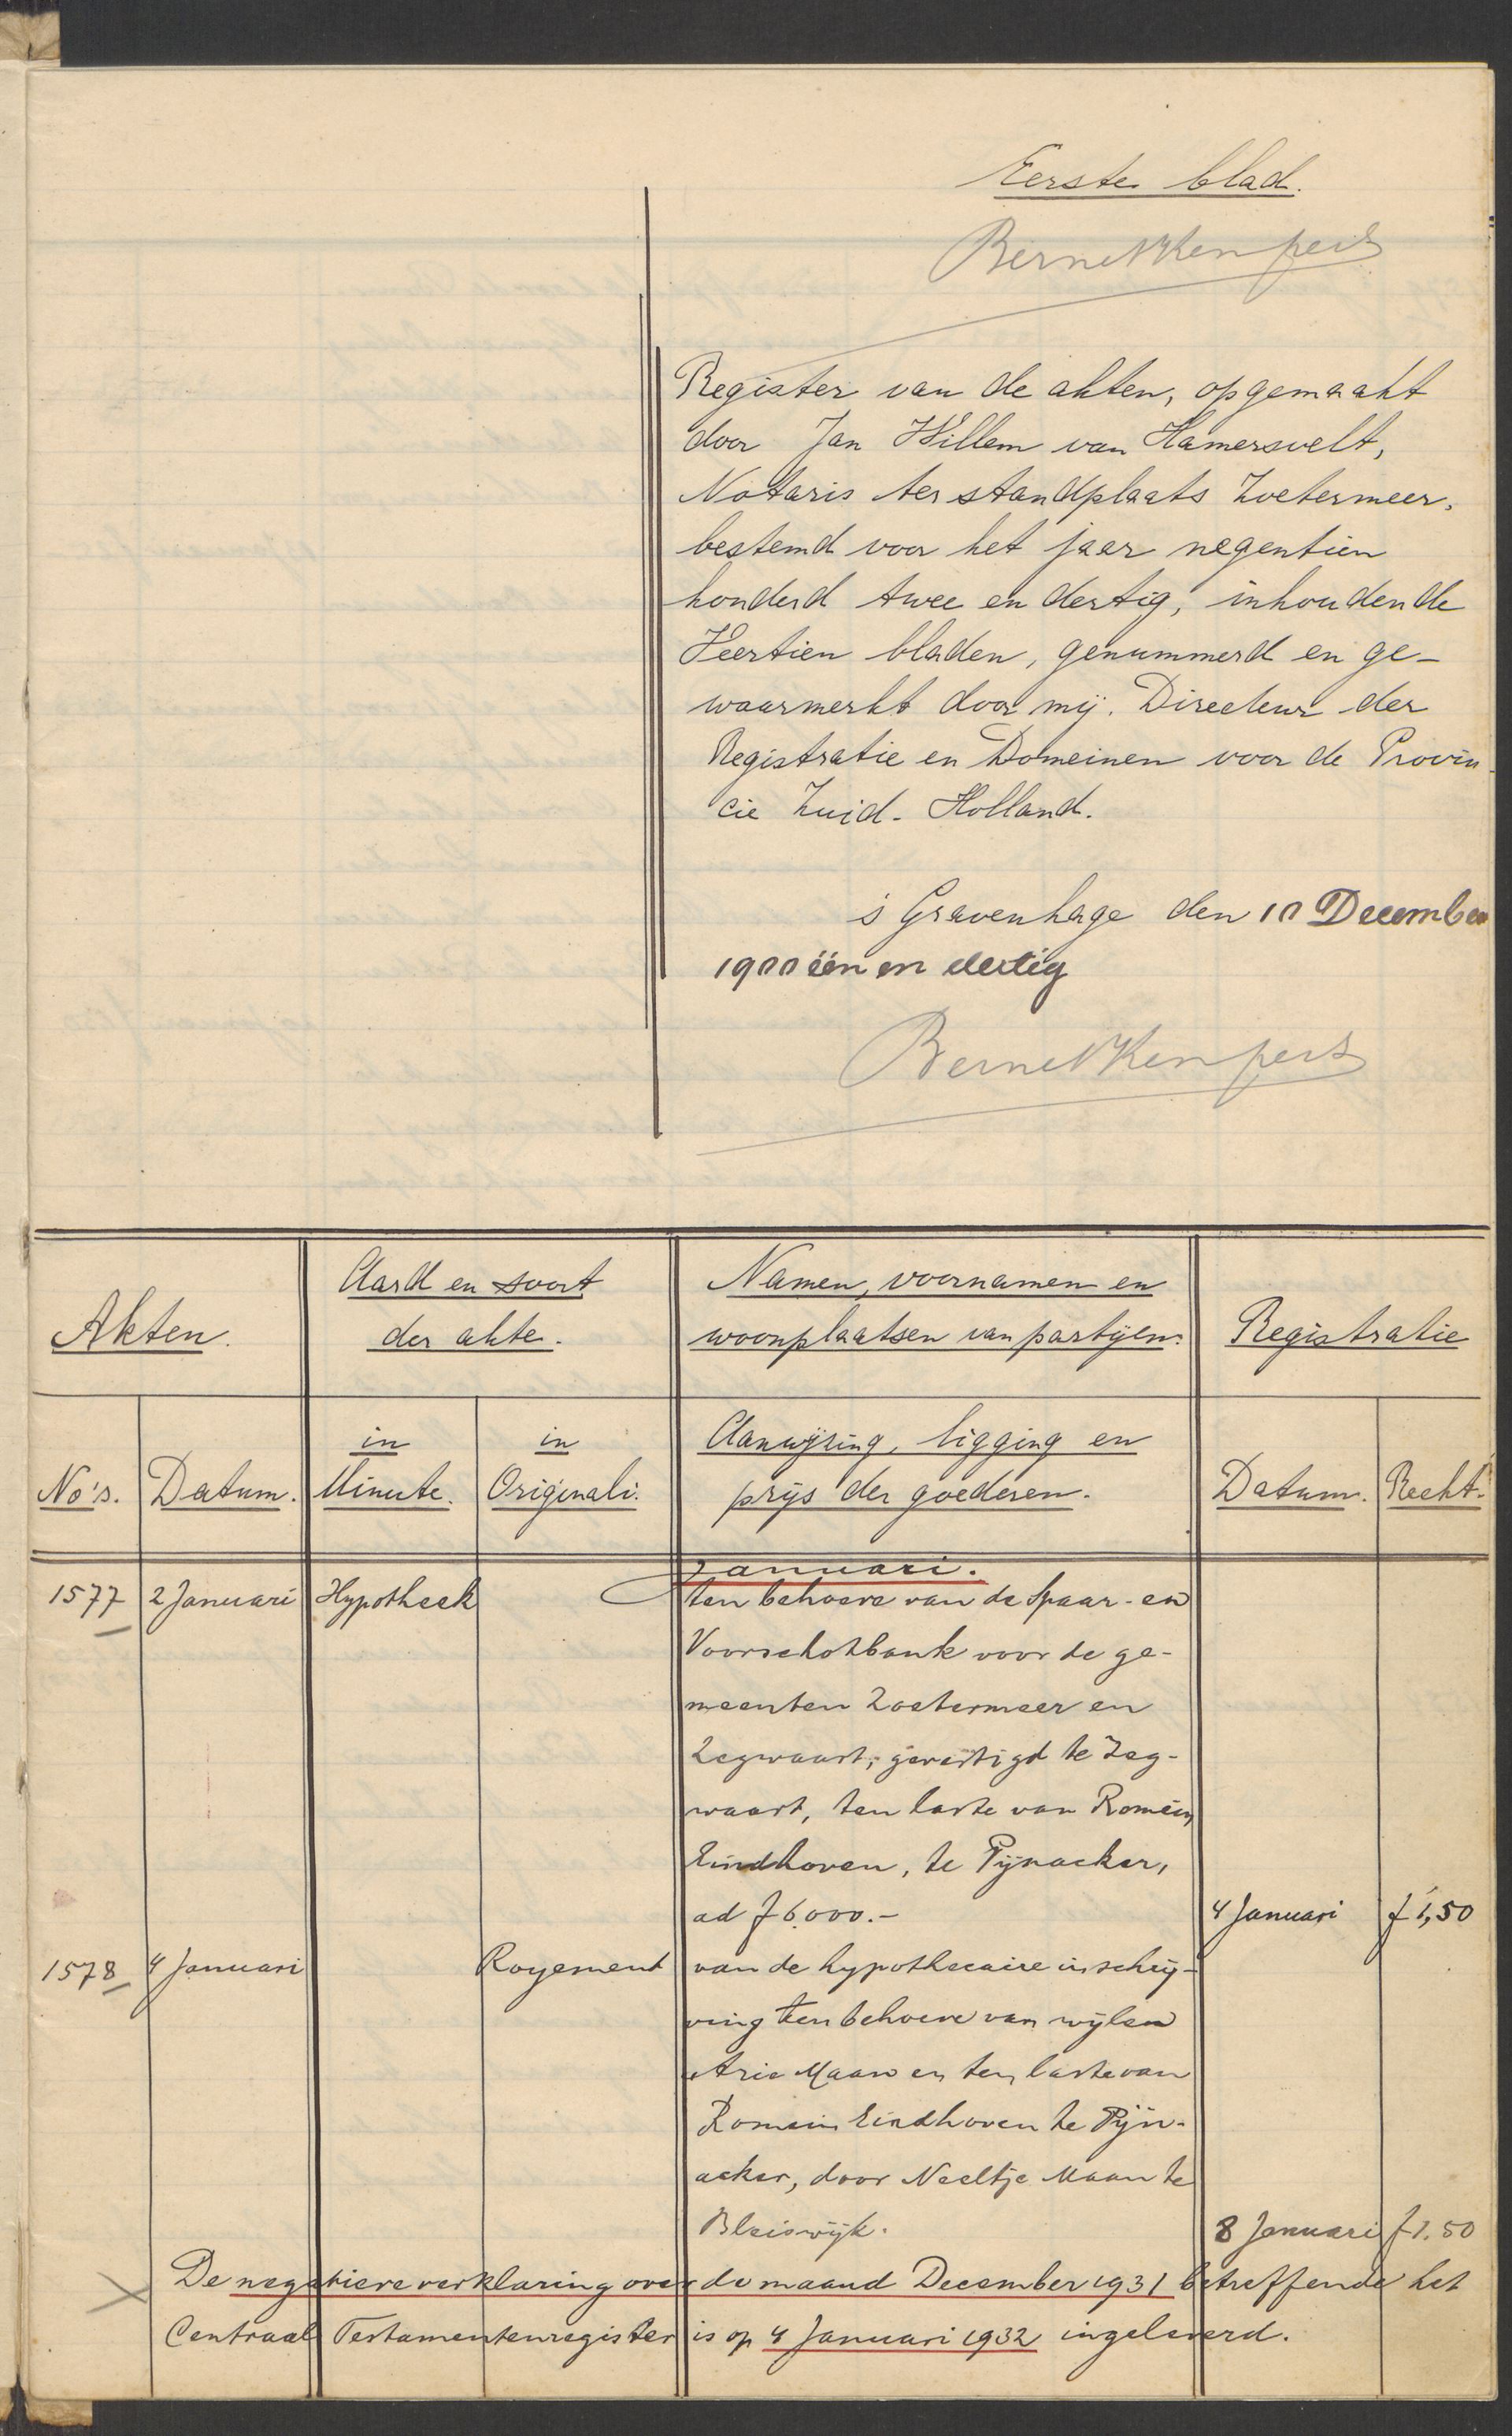 Eerste blad.
Bernet Kempers
Register van de akten, opgemaakt
door Jan Willem van Hamersvelt,
Notaris ter standplaats Zoetermeer,
bestemd voor het jaar negentien
honderd twee en dertig, inhoudende
Veertien bladen, genummerd en ge-
waarmerkt door mij. Directeur der
Registratie en Domeinen voor de Provin
cie Zuid-Holland.
's Gravenhage den 10 December
1900 één en dertig
Bernet Kempers
Akten.
Aard en soort
der akte.
Namen, voornamen en
woonplaatsen van partijen.
Registratie
No's.
Datum.
in
Minute.
in
Originali.
Aanwijzing, ligging en
prijs der goederen.
Datum.
Recht.
Januari.
1577 2 Januari Hypotheek ten behoeve van de Spaar- en
Voorschotbank voor de ge-
meenten Zoetermeer en
Zegwaart, gevestigd te Zeg-
waart, ten laste van Romein
Eindhoven, te Pijnacker,
ad f 6.000.- 4 Januari f 1,50
1578 4 Januari Royement van de hypothecaire inschrij-
ving ten behoeve van wijlen
Arie Maan en ten laste van
Romein Eindhoven te Pijn-
acker, door Neeltje Maan te
Bleiswijk. 8 Januari f 1.50
De negatieve verklaring over de maand December 1931 betreffende het
Centraal Testamentenregister is op 4 Januari 1932 ingeleverd.